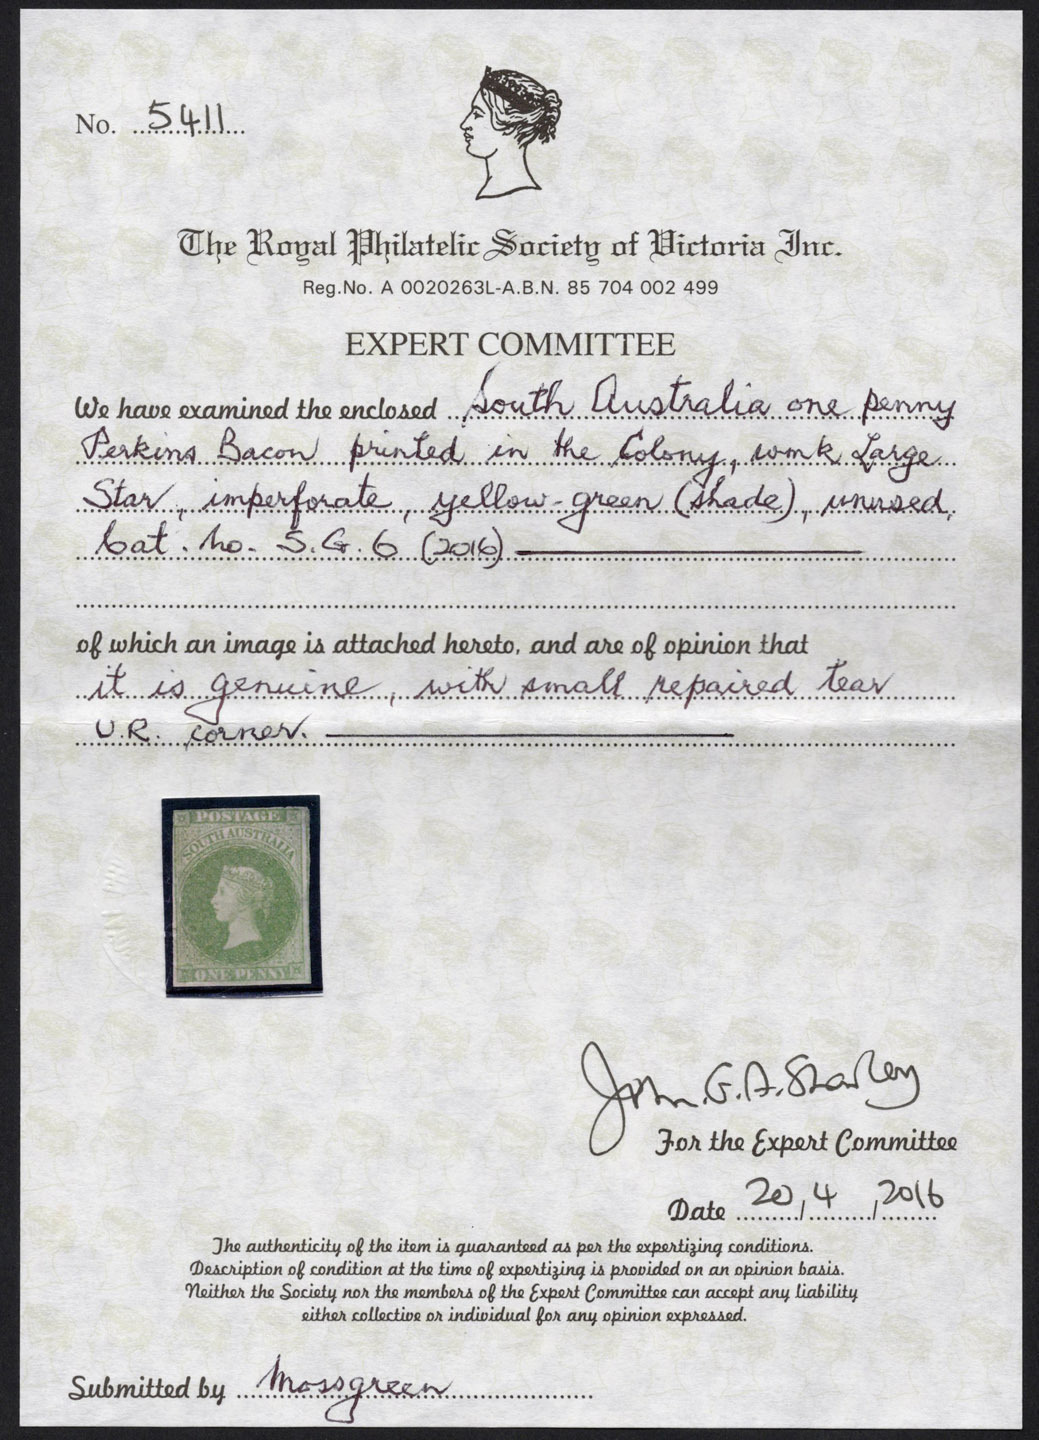 No. 5411
The Royal Philatelic Society of Victoria Inc.
Reg.No. A 0020263L-A.B.N. 85 704 002 499
EXPERT COMMITTEE
We have examined the enclosed South Australia one penny
Perkins Bacon printed in the Colony, wmk Large
Star, imperforate, yellow-green (shade), unused,
Cat. no. S.G. 6 (2016)
of which an image is attached hereto, and are of opinion that
it is genuine, with small repaired tear
U.R. corner.
POSTAGE
SOUTH AUSTRALIA
ONE PENNY
John. G. A.
For the Expert Committee
Date 20/4/2016
The authenticity of the item is guaranteed as per the expertizing conditions.
Description of condition at the time of expertizing is provided on an opinion basis.
Neither the Society nor the members of the Expert Committee can accept any liability
either collective or individual for any opinion expressed.
Submitted by Mossgreen